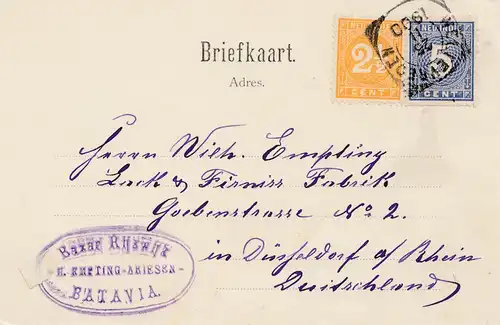 Briefkaart.
Adres.
2½
CENT
NED-INDIE
5
CENT
1900
Herrn Wilh. Empting
Lack & Firniss Fabrik
Goebenstrasse No 2.
in Düsseldorf a/Rhein
Deutschland
Bazar Rijswijk
H. EMPTING-ABIESEN-
BATAVIA.